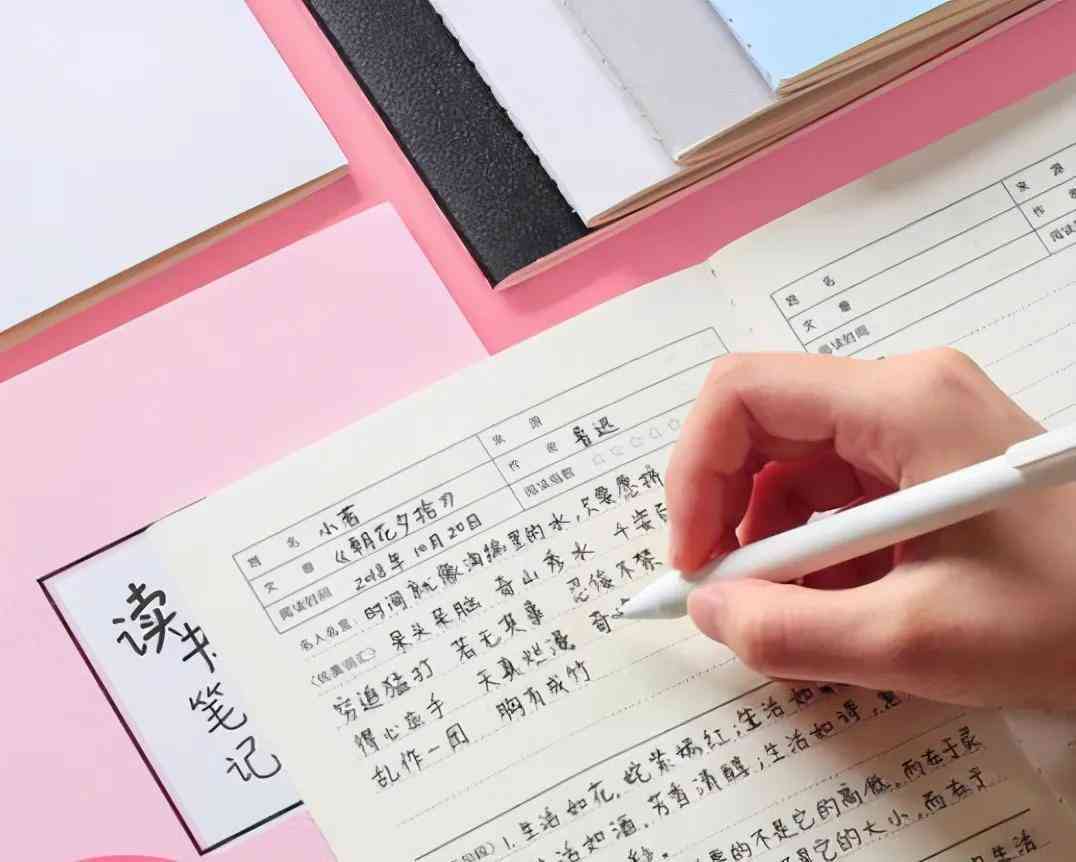 读书笔记
题 名 小茗 来 源
文 章 《朝花夕拾》 作 者 鲁迅
阅读时间 2018年10月20日 阅读指数 ☆☆☆☆☆
名人名言: 时间就像海绵里的水,只要愿挤
《优美词汇》 呆头呆脑 奇山秀水 千姿百
穷追猛打 若无其事 忍俊不禁
得心应手 天真烂漫 奇
乱作一团 胸有成竹
1.生活如花,姹紫嫣红;生活如
活如酒,芳香清醇;生活如诗,意
要的不是它的高低,而在于灵
是它的大小,而在于
生活
题 名 来 源
文 章 作 者
阅读时间 阅读